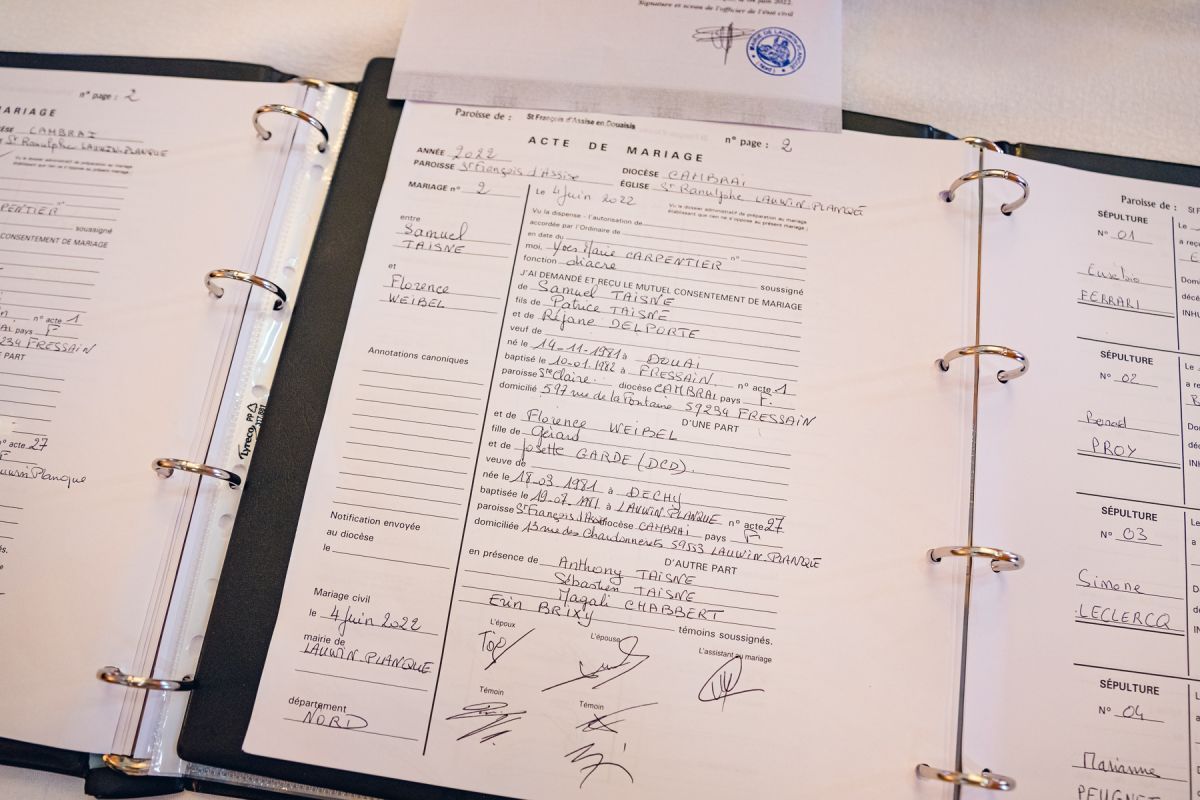 juin 2022.
Signature et sceau de l'officier de l'état civil
MAIRIE DE LAUWIN-PLANQUE
(Nord)
n° page : 2
MARIAGE
CAMBRAI
St Ranulphe LAUWIN-PLANQUE
Vu le dossier administratif de préparation au mariage
établissant que rien ne s'oppose au présent mariage :
CARPENTIER n°
soussigné
CONSENTEMENT DE MARIAGE
n° acte 1
pays F
59234 FRESSAIN
PART
n° acte 27
F
Lauwin Planque
Lyreco
Paroisse de : St François d'Assise en Douaisis
n° page : 2
ACTE DE MARIAGE
ANNÉE 2022
DIOCÈSE CAMBRAI
PAROISSE St François d'Assise
ÉGLISE St Ranulphe LAUWIN-PLANQUE
MARIAGE n° 2
Le 4 juin 2022
Vu le dossier administratif de préparation au mariage
établissant que rien ne s'oppose au présent mariage ;
Vu la dispense - l'autorisation de
accordée par l'Ordinaire de
en date du n°
moi, Yves Marie CARPENTIER
fonction diacre soussigné
J'AI DEMANDÉ ET REÇU LE MUTUEL CONSENTEMENT DE MARIAGE
de Samuel TAISNE
fils de Patrice TAISNE
et de Réjane DELPORTE
veuf de
né le 14-11-1981 à DOUAI
baptisé le 10-01.1982 à FRESSAIN. n° acte 1
paroisse Ste Claire. diocèse CAMBRAI pays F.
domicilié 597 rue de la Fontaine 59234 FRESSAIN
D'UNE PART
et de Florence WEIBEL
fille de Gérard
et de Josette GARDE (DCD).
veuve de
née le 18-03 1981 à DECHY
baptisée le 19-07-1981 à LAUWIN-PLANQUE n° acte 27
paroisse St François d'Assise diocèse CAMBRAI pays F
domiciliée 13 rue des Chardonnerets 59553 LAUWIN-PLANQUE
D'AUTRE PART
en présence de Anthony TAISNE
Sébastien TAISNE
Magali CHABBERT
Erin BRIXY témoins soussignés.
L'époux
L'épouse
L'assistant au mariage
Témoin
Témoin
entre
Samuel
TAISNE
et
Florence
WEIBEL
Annotations canoniques
Notification envoyée
au diocèse
le
Mariage civil
le 4 juin 2022
mairie de
LAUWIN-PLANQUE
département
NORD
Paroisse de : St F
SÉPULTURE
N° 01
Eusebio
FERRARI
Le
a reç
Domi
décé
INHU
SÉPULTURE
N° 02
Benoit
PROY
Le
a re
Dom
déc
INH
SÉPULTURE
N° 03
Simone
LECLERCQ
Le
a
SÉPULTURE
N° 04
Marianne
PEUGNET